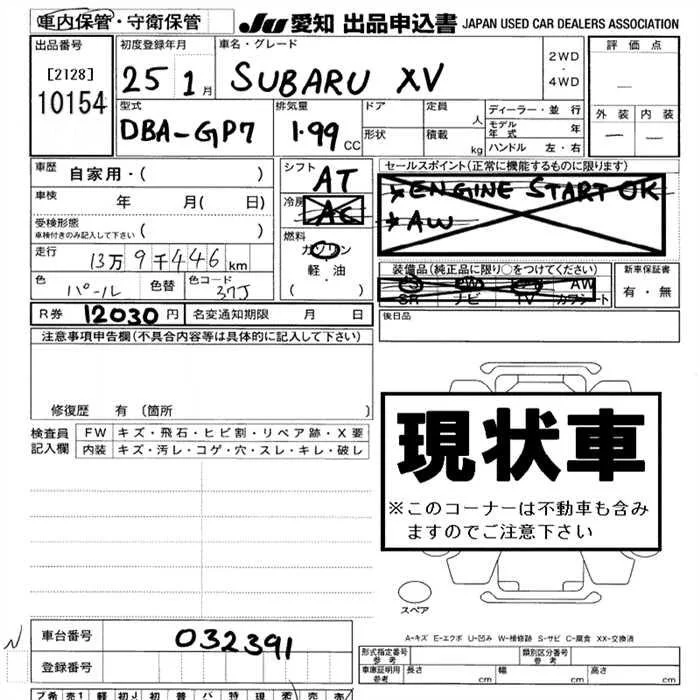 車内保管・守衛保管
JU 愛知 出品申込書 JAPAN USED CAR DEALERS ASSOCIATION
出品番号
[2128]
10154
初度登録年月
25 1月
車名・グレード
SUBARU XV
2WD
・
4WD
評価点
—
外装 内装
— —
型式
DBA-GP7
排気量
1.99 CC
ドア
形状
定員 人
積載 kg
ディーラー・並 行
モデル年式 年
ハンドル 左・右
車歴 自家用・( )
車検 年 月( 日)
受検形態
車検付きのみ記入して下さい ( )
走行 13万9千446km
色 パール
色替
色コード 37J
シフト AT
冷房 AC
燃料
ガソリン
・
軽・油
( )
セールスポイント(正常に機能するものに限ります)
*ENGINE START OK
*AW
装備品(純正品に限り○をつけてください)
SR PW ナビ TV AW カワシート
新車保証書
有・無
R券 12030円 名変通知期限 月 日
後日品
注意事項申告欄(不具合内容等は具体的に記入して下さい)
修復歴 有(箇所 )
検査員記入欄
FW キズ・飛石・ヒビ割・リペア跡・X要
内装 キズ・汚レ・コゲ・穴・スレ・キレ・破レ
現状車
※このコーナーは不動車も含み
ますのでご注意下さい
スペア
A-キズ E-エクボ U-凹み W-補修跡 S-サビ C-腐食 XX-交換済
車台番号 032391
登録番号
形式指定番号
参考
類別区分番号
参考
車庫証明用
参考
長さ cm 幅 cm 高さ cm